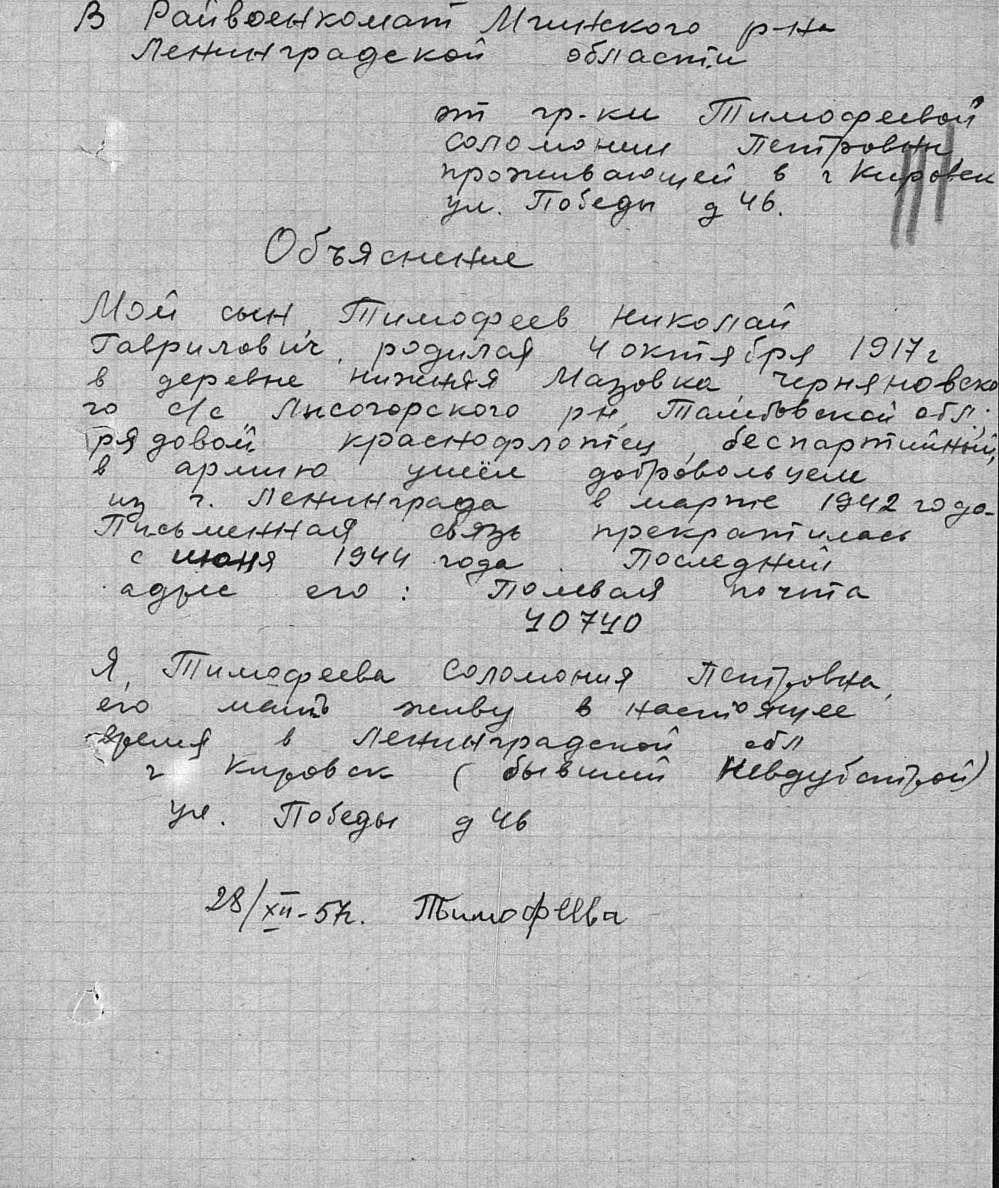 В Райвоенкомат Мгинского р-на
Ленинградской области
от гр-ки Тимофеевой
Соломонии Петровны
проживающей в г Кировск
ул. Победы д 4в.
Объяснение
Мой сын, Тимофеев Николай
Гаврилович, родился 4 октября 1917 г
в деревне Нижняя Мазовка, Черняновско
го с/с Лысогорского р-н, Тамбовской обл.;
рядовой, краснофлотец, беспартийный,
в армию ушёл добровольцем
из г. Ленинграда в марте 1942 года.
Письменная связь прекратилась
с июня 1944 года. Последний
адрес его: Полевая почта
40740
Я, Тимофеева Соломония Петровна,
его мать живу в настоящее
время в Ленинградской обл
г Кировск (бывший Невдубстрой)
ул. Победы д 4в
28/XII-57г. Тимофеева